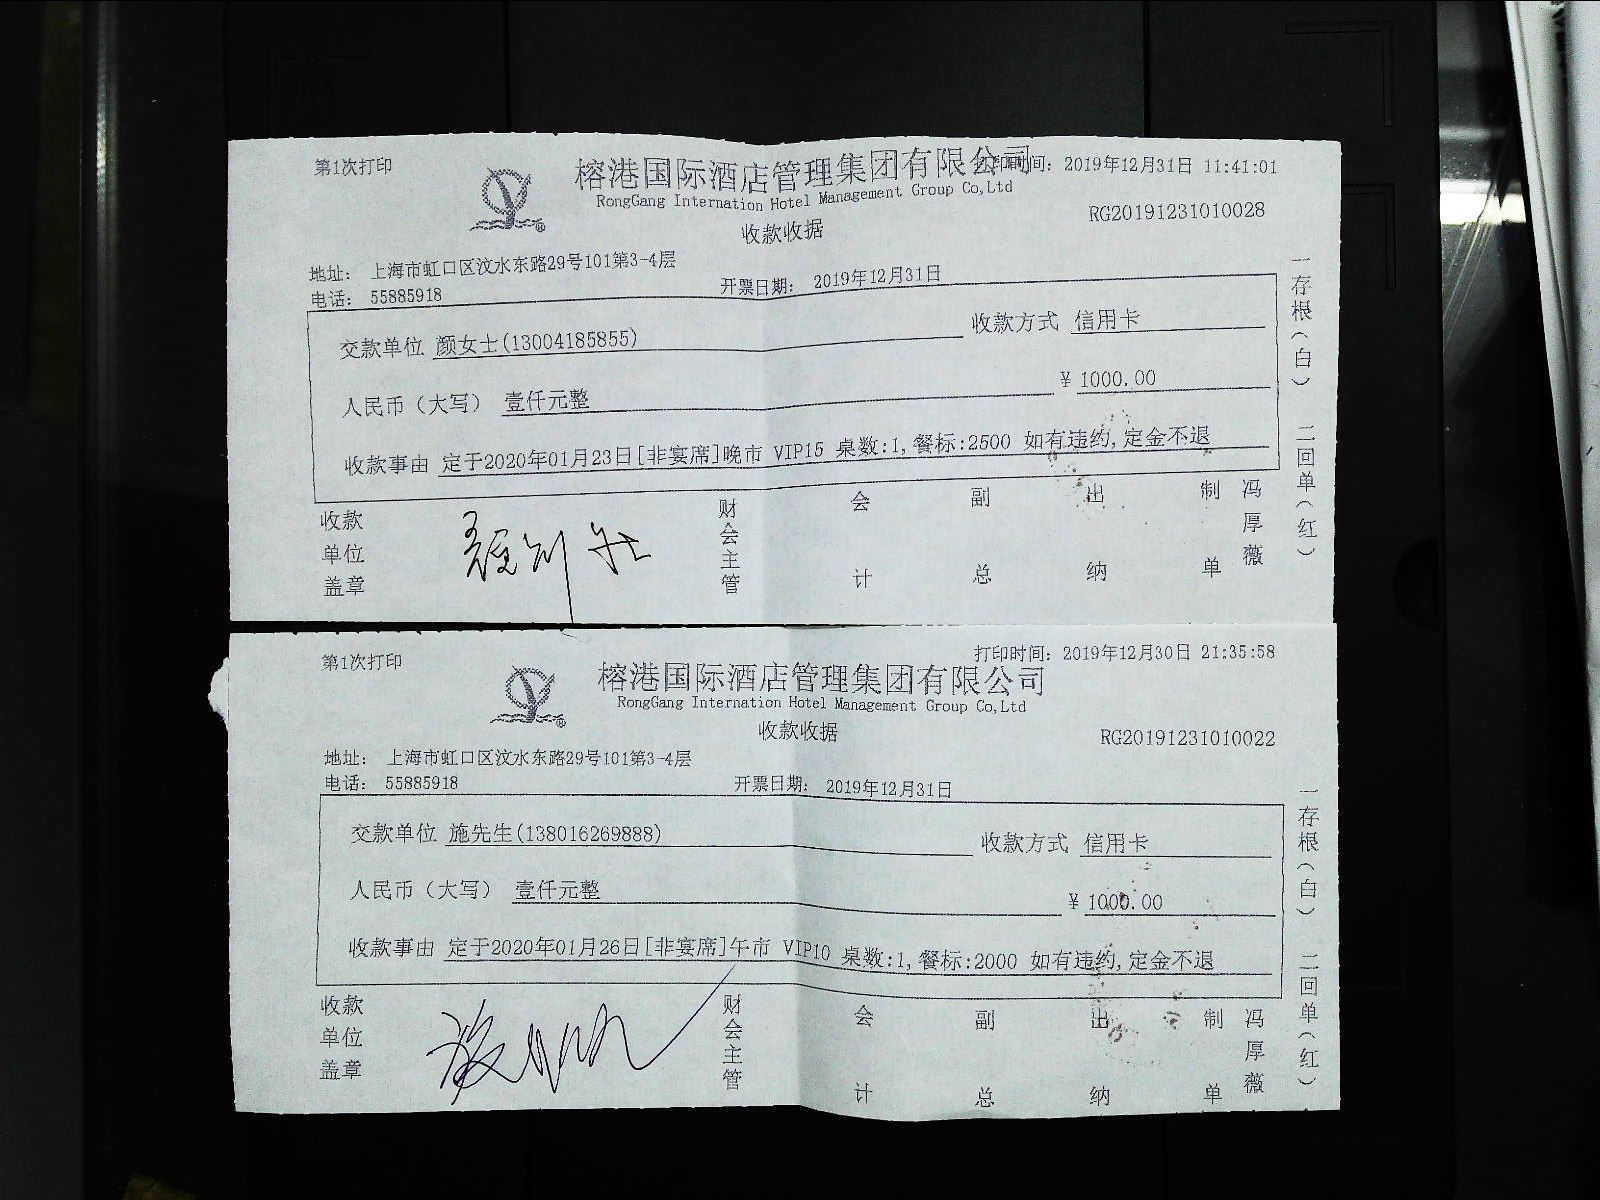 第1次打印
打印时间: 2019年12月31日 11:41:01
榕港国际酒店管理集团有限公司
RongGang Internation Hotel Management Group Co,Ltd
RG20191231010028
收款收据
地址: 上海市虹口区汶水东路29号101第3-4层
电话: 55885918
开票日期: 2019年12月31日
交款单位 颜女士(13004185855) 收款方式 信用卡
人民币（大写） 壹仟元整 ¥ 1000.00
收款事由 定于2020年01月23日[非宴席]晚市 VIP15 桌数:1,餐标:2500 如有违约,定金不退
收款单位盖章 财会主管 会计 副总 出纳 制单 冯厚薇
一存根（白） 二回单（红）
第1次打印
打印时间: 2019年12月30日 21:35:58
榕港国际酒店管理集团有限公司
RongGang Internation Hotel Management Group Co,Ltd
收款收据
RG20191231010022
地址: 上海市虹口区汶水东路29号101第3-4层
电话: 55885918
开票日期: 2019年12月31日
交款单位 施先生(138016269888) 收款方式 信用卡
人民币（大写） 壹仟元整 ¥ 1000.00
收款事由 定于2020年01月26日[非宴席]午市 VIP10 桌数:1,餐标:2000 如有违约,定金不退
收款单位盖章 财会主管 会计 副总 出纳 制单 冯厚薇
一存根（白） 二回单（红）